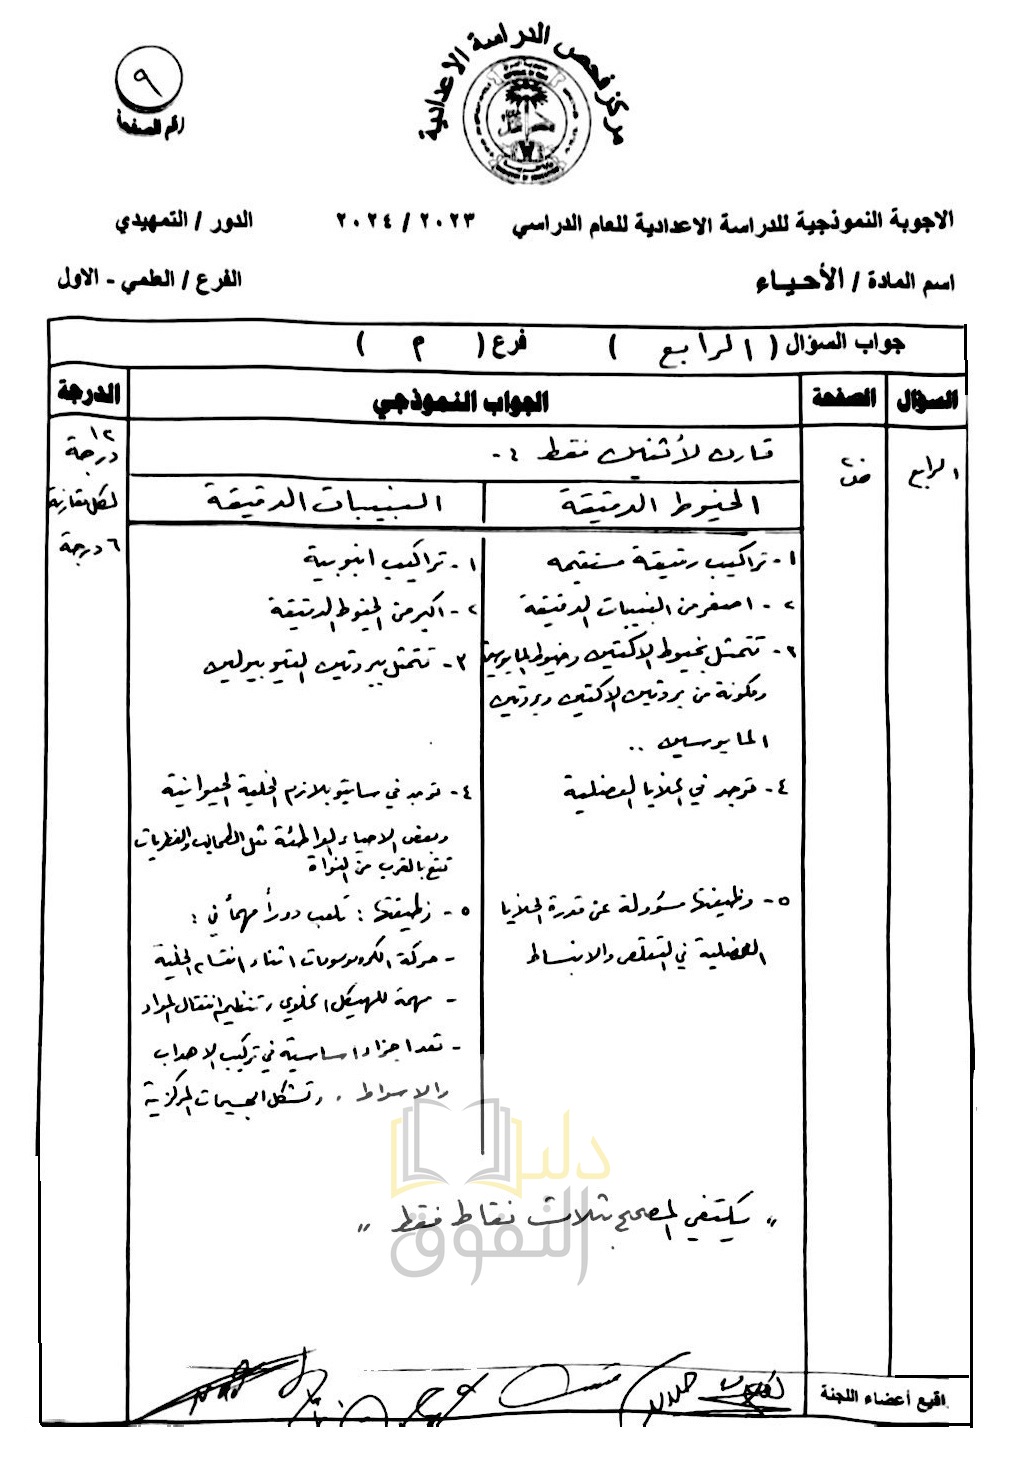 مركز فحص الدراسة الاعدادية
٩
رقم الصفحة
الاجوبة النموذجية للدراسة الاعدادية للعام الدراسي ٢٠٢٣ / ٢٠٢٤ الدور / التمهيدي
اسم المادة / الأحياء الفرع / العلمي - الاول
جواب السؤال ( الرابع ) فرع ( م )
السؤال الصفحة الجواب النموذجي الدرجة
الرابع
١٢
درجة
لكل مقارنة
٦ درجة
قارن لأثنين فقط :-
الخيوط الدقيقة
١- تراكيب رقيقة مستقيمه
٢- اصغر من النبيبات الدقيقة
٣- تتمثل بخيوط الاكتين وخيوط المايوسين
ومكونة من بروتين الاكتين وبروتين
المايوسين ..
٤- توجد في الخلايا العضلية
٥- وظيفتها مسؤولة عن قدرة الخلايا
العضلية في التقلص والانبساط
النبيبات الدقيقة
١- تراكيب انبوبية
٢- اكبر من الخيوط الدقيقة
٣- تتمثل ببروتين التيوبيولين
٤- توجد في سايتوبلازم الخلية الحيوانية
وبعض الاحياء الواطئة مثل الطحالب والفطريات
تقع بالقرب من النواة
٥- وظيفتها : تلعب دوراً مهماً في :
- حركة الكروموسومات اثناء انقسام الخلية
- مهمة للهيكل الخلوي وتنظيم انتقال المواد
- تعد اجزاء اساسية في تركيب الاهداب
والاسواط . وتشكل الجسيمات المركزية
" يكتفي المصحح بثلاث نقاط فقط "
دليل
التفوق
توقيع أعضاء اللجنة